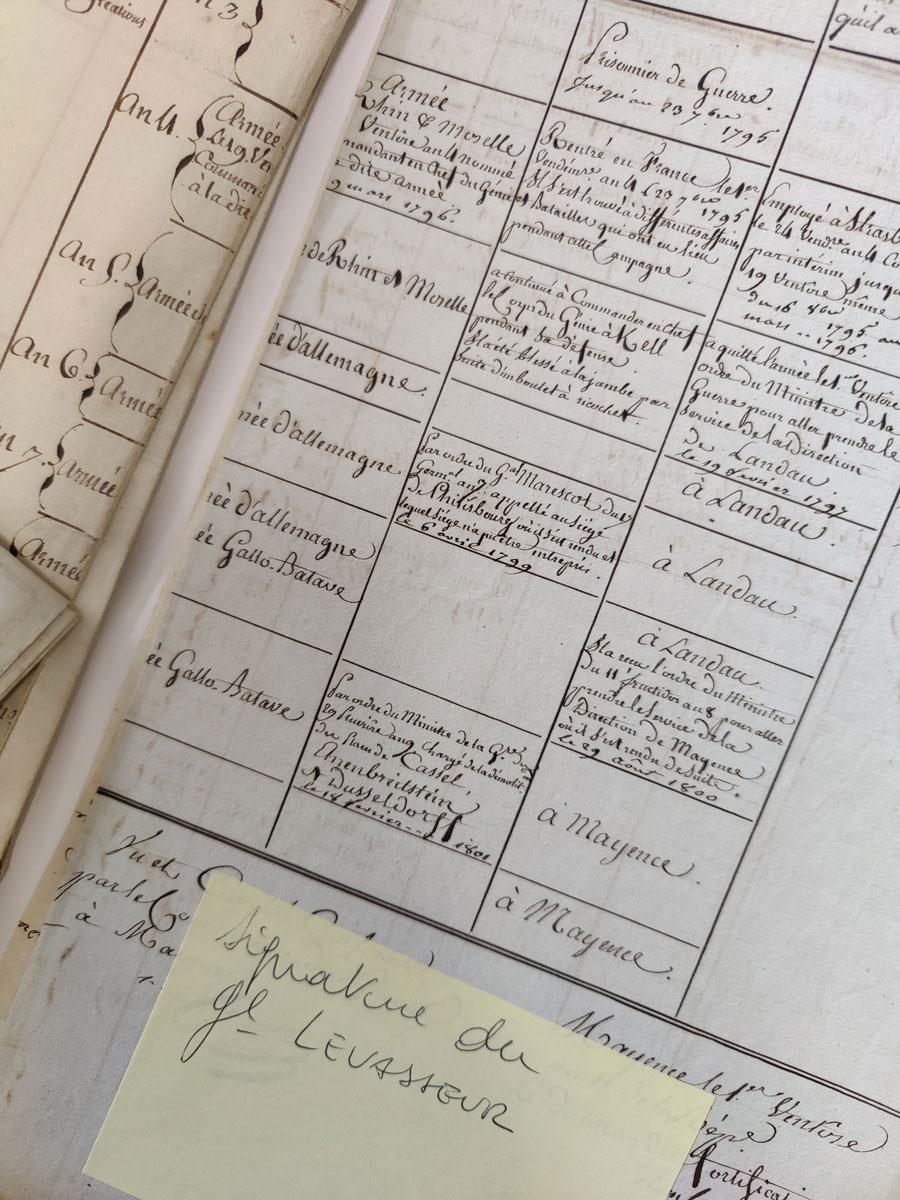 n 3
An 4.
Armée
Command
à la di
An 5.
Armée d
An 6.
Armée
n 7.
Armée
Armée
Armée
Rhin & Moselle
Ventôse an 4 nommé
mandant en Chef du Génie
dite armée
9 mars 1796.
de Rhin et Moselle
ée d'allemagne.
née d'allemagne
née d'allemagne
ée Gallo-Batave
ée Gallo-Batave
Prisonnier de Guerre.
Jusqu'au 23 7.bre
1795
Rentré en France le 1.er
Vendém.re an 4 (23 7bre
1795
Il s'est trouvé à différentes affaires
et Batailles qui ont eu lieu
pendant cette Campagne
a continué à Commander en Chef
le Corps du Génie à Kell
pendant sa défense.
Il a été blessé à la jambe par
suite d'un boulet à ricochet.
Par ordre du G.al Marescot, du 17
Germ.al an 7 appellé au Siège
de Philisbourg, où il s'est rendu et
lequel Siège n'a pu être entrepris.
le 6 avril 1799
Par ordre du Ministre de la G.re du
29 Pluviôse an 9 Chargé de la démolit.
des Places de Cassel,
Ehrenbreitstein
et Dusseldorff
le 18 février 1801
qu'il a
Employé à Strasb
le 24 Vend.re an 4 Co
par intérim jusqu
19 Ventôse même
du 16 8bre 1795 au
mars 1796.
a quitté l'armée le 1.er Ventôse
ordre du Ministre de la
Guerre pour aller prendre le
service de la direction
de Landau.
le 19 février 1797
à Landau.
à Landau
à Landau.
Il a reçu l'ordre du Ministre
du 11 fructidor an 8 pour aller
prendre le service de la
Direction de Mayence
où il s'est rendu de suite.
le 29 août 1800
à Mayence.
à Mayence.
Vu et
par le C
à Ma
Mayence le 1.er Ventôse
Fortificati
Signature du
Gl LEVASSEUR